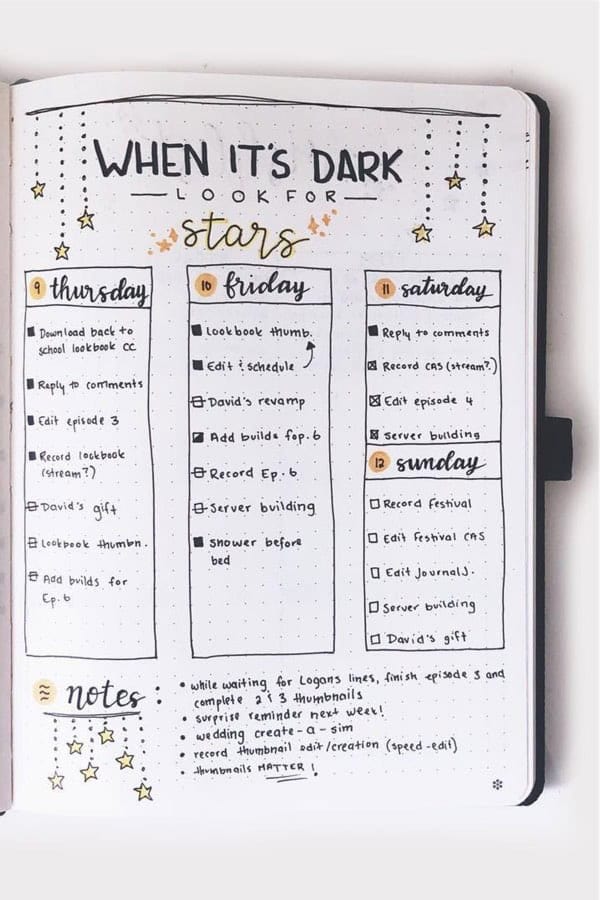 WHEN IT'S DARK
LOOK FOR
stars
9 thursday
Download back to
school lookbook CC
Reply to comments
Edit episode 3
Record lookbook
(stream?)
David's gift
Lookbook thumbn.
Add builds for
Ep. 6
10 friday
Lookbook thumb.
Edit & schedule
David's revamp
Add builds fop. 6
Record Ep. 6
Server building
Shower before
bed
11 saturday
Reply to comments
Record CAS (stream?)
Edit episode 4
Server building
12 sunday
Record Festival
Edit Festival CAS
Edit JournalJ.
Server building
David's gift
notes:
• while waiting for Logans lines, finish episode 3 and
complete 2 & 3 thumbnails
• surprise reminder next week!
• wedding create-a-sim
• record thumbnail edit/creation (speed-edit)
• thumbnails MATTER!